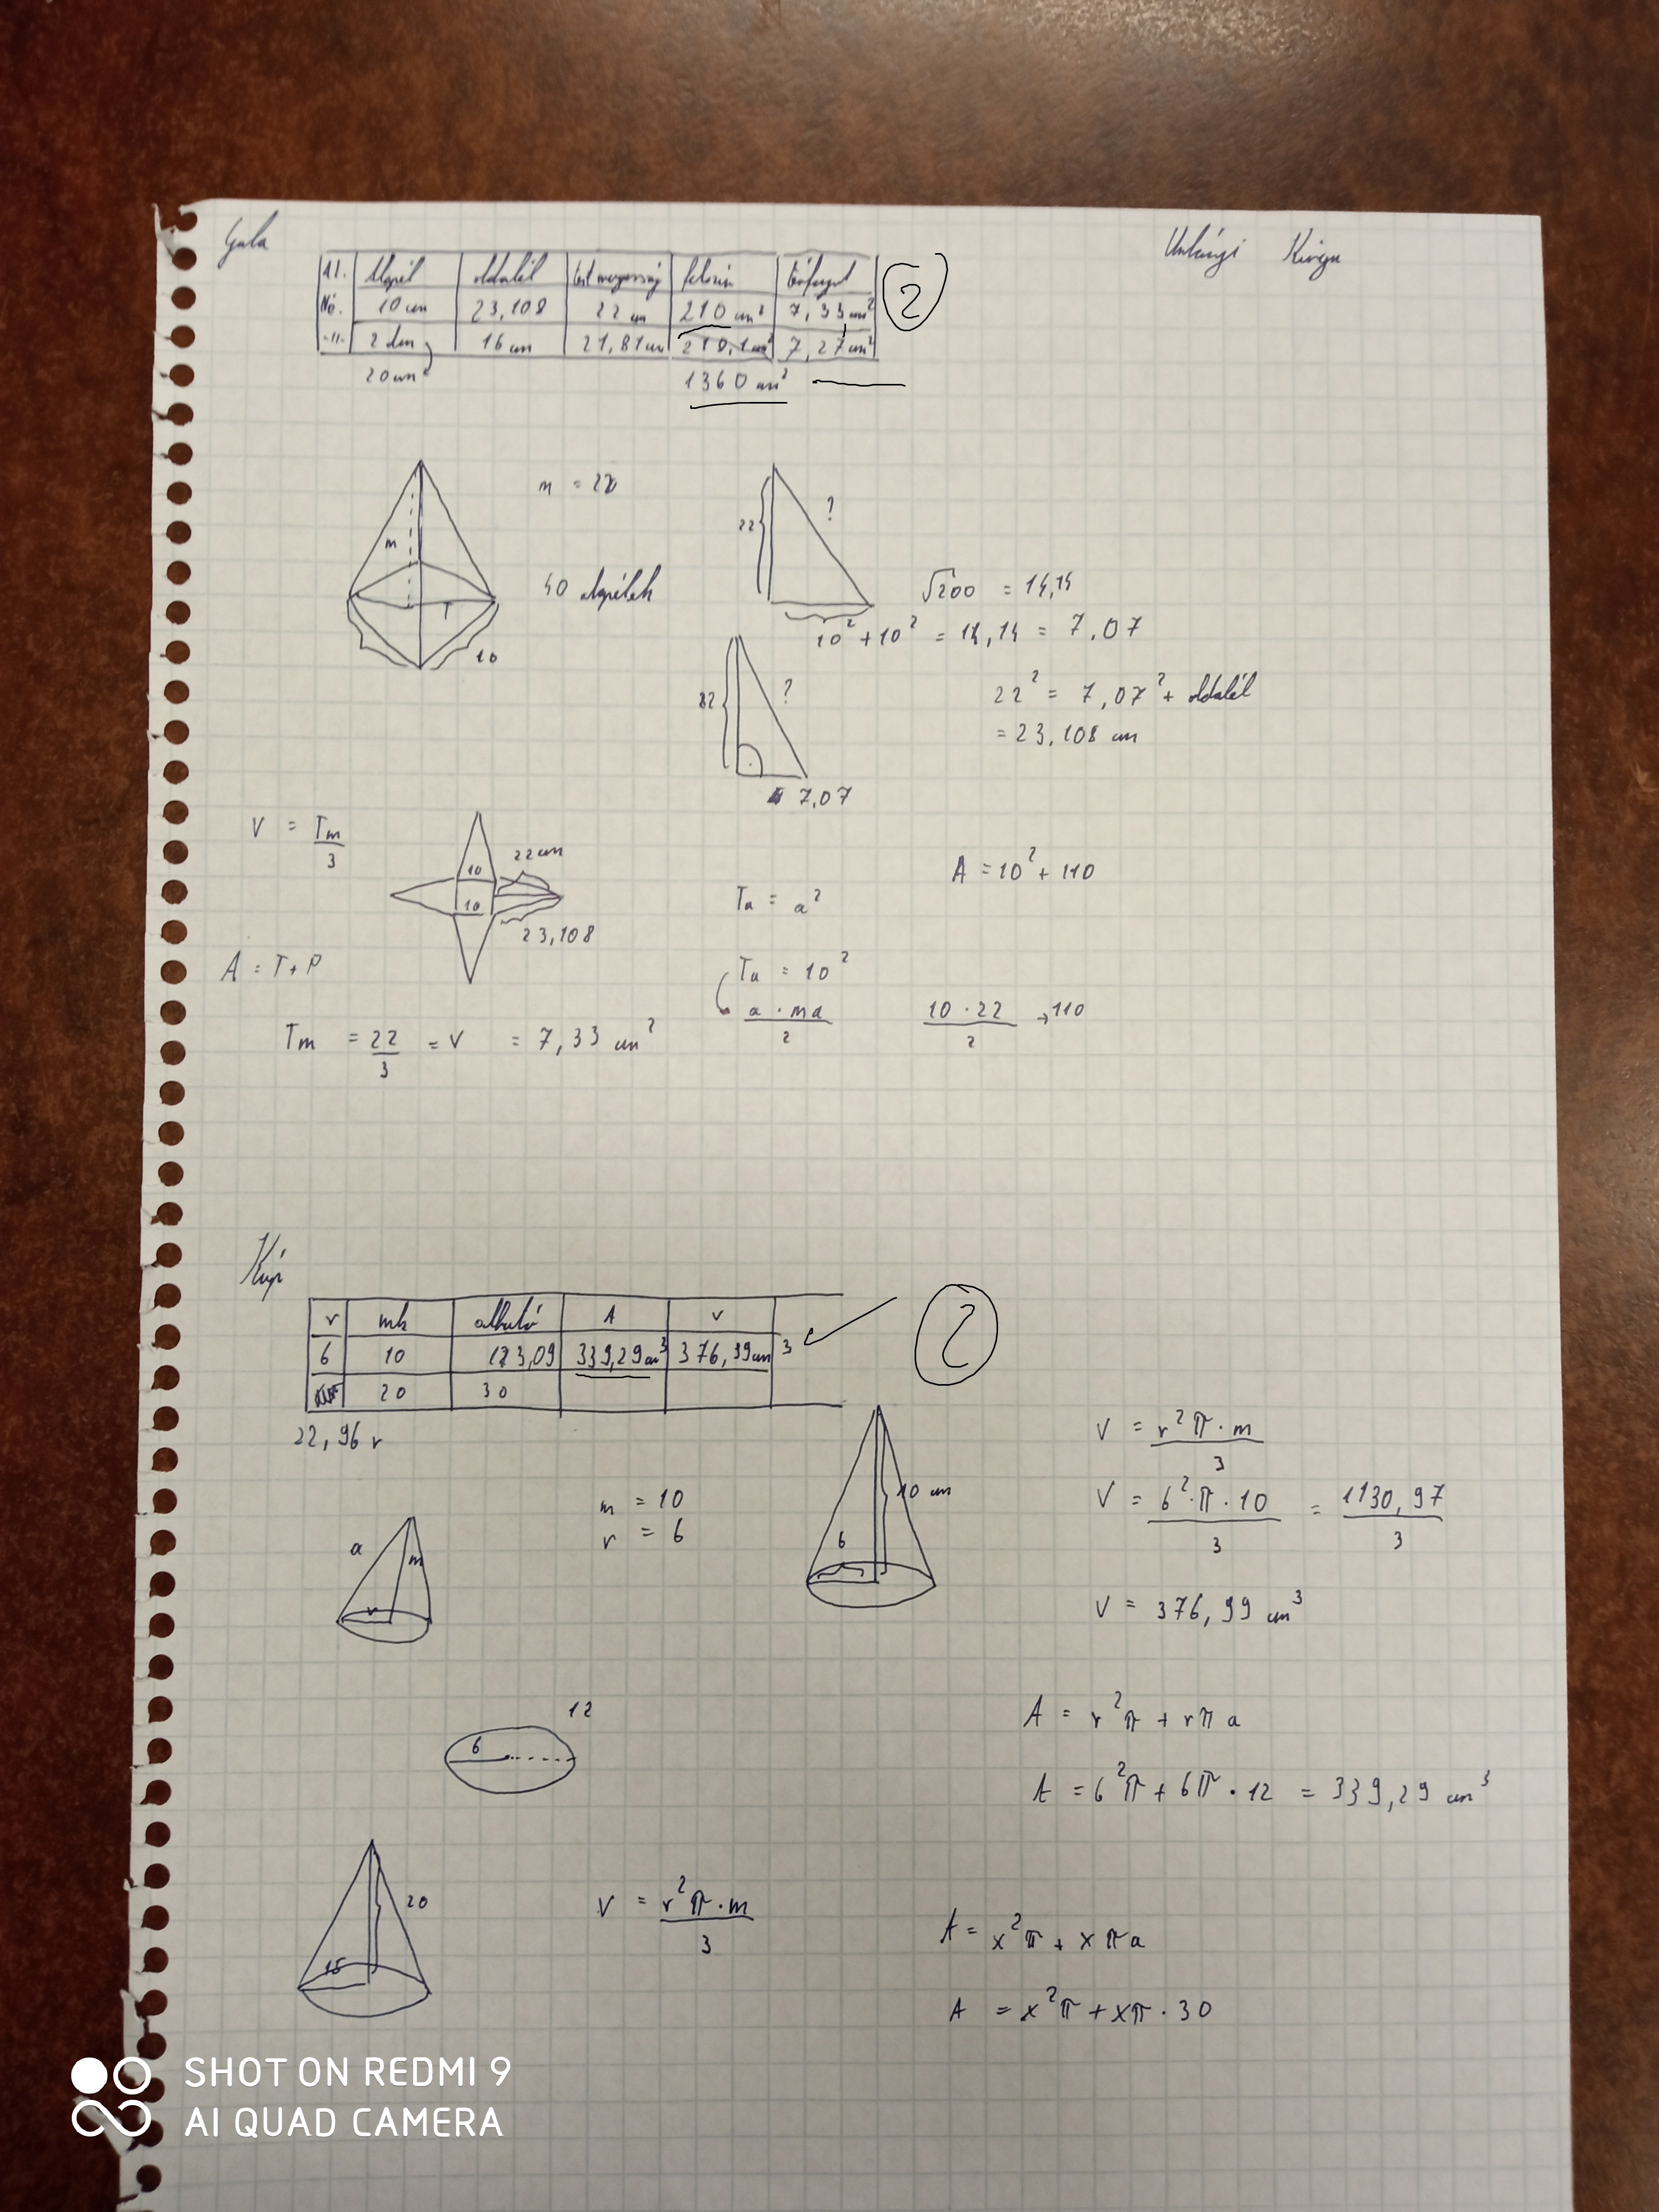 Gula
Kinga
Al. Alapél oldalél test magasság felszín térfogat
Né. 10 cm 23,108 22 cm 210 cm² 7,33 cm²
-11- 2 dm 16 cm 21,81 cm 210,1 cm² 7,27 cm²
2
20 cm
1360 cm²
m = 22
m
10
40 alapélek
22
?
√200 = 14,14
10² + 10² = 14,14 = 7,07
22
?
7,07
22² = 7,07² + oldalél
= 23,108 cm
V = Tm
3
22 cm
10
10
23,108
A = 10² + 110
Ta = a²
A = T + P
Ta = 10²
a · ma
2
10 · 22 → 110
2
Tm = 22 = V = 7,33 cm²
3
Kúp
r mk alkotó A V
6 10 123,09 339,29 cm³ 376,39 cm 3
20 30
2
22,96 r
m = 10
r = 6
a
m
r
10 cm
6
V = r²π · m
3
V = 6² · π · 10 = 1130,97
3 3
V = 376,99 cm³
12
6
A = r²π + rπa
A = 6²π + 6π · 12 = 339,29 cm³
20
15
V = r²π · m
3
A = x²π + xπa
A = x²π + xπ · 30
SHOT ON REDMI 9
AI QUAD CAMERA